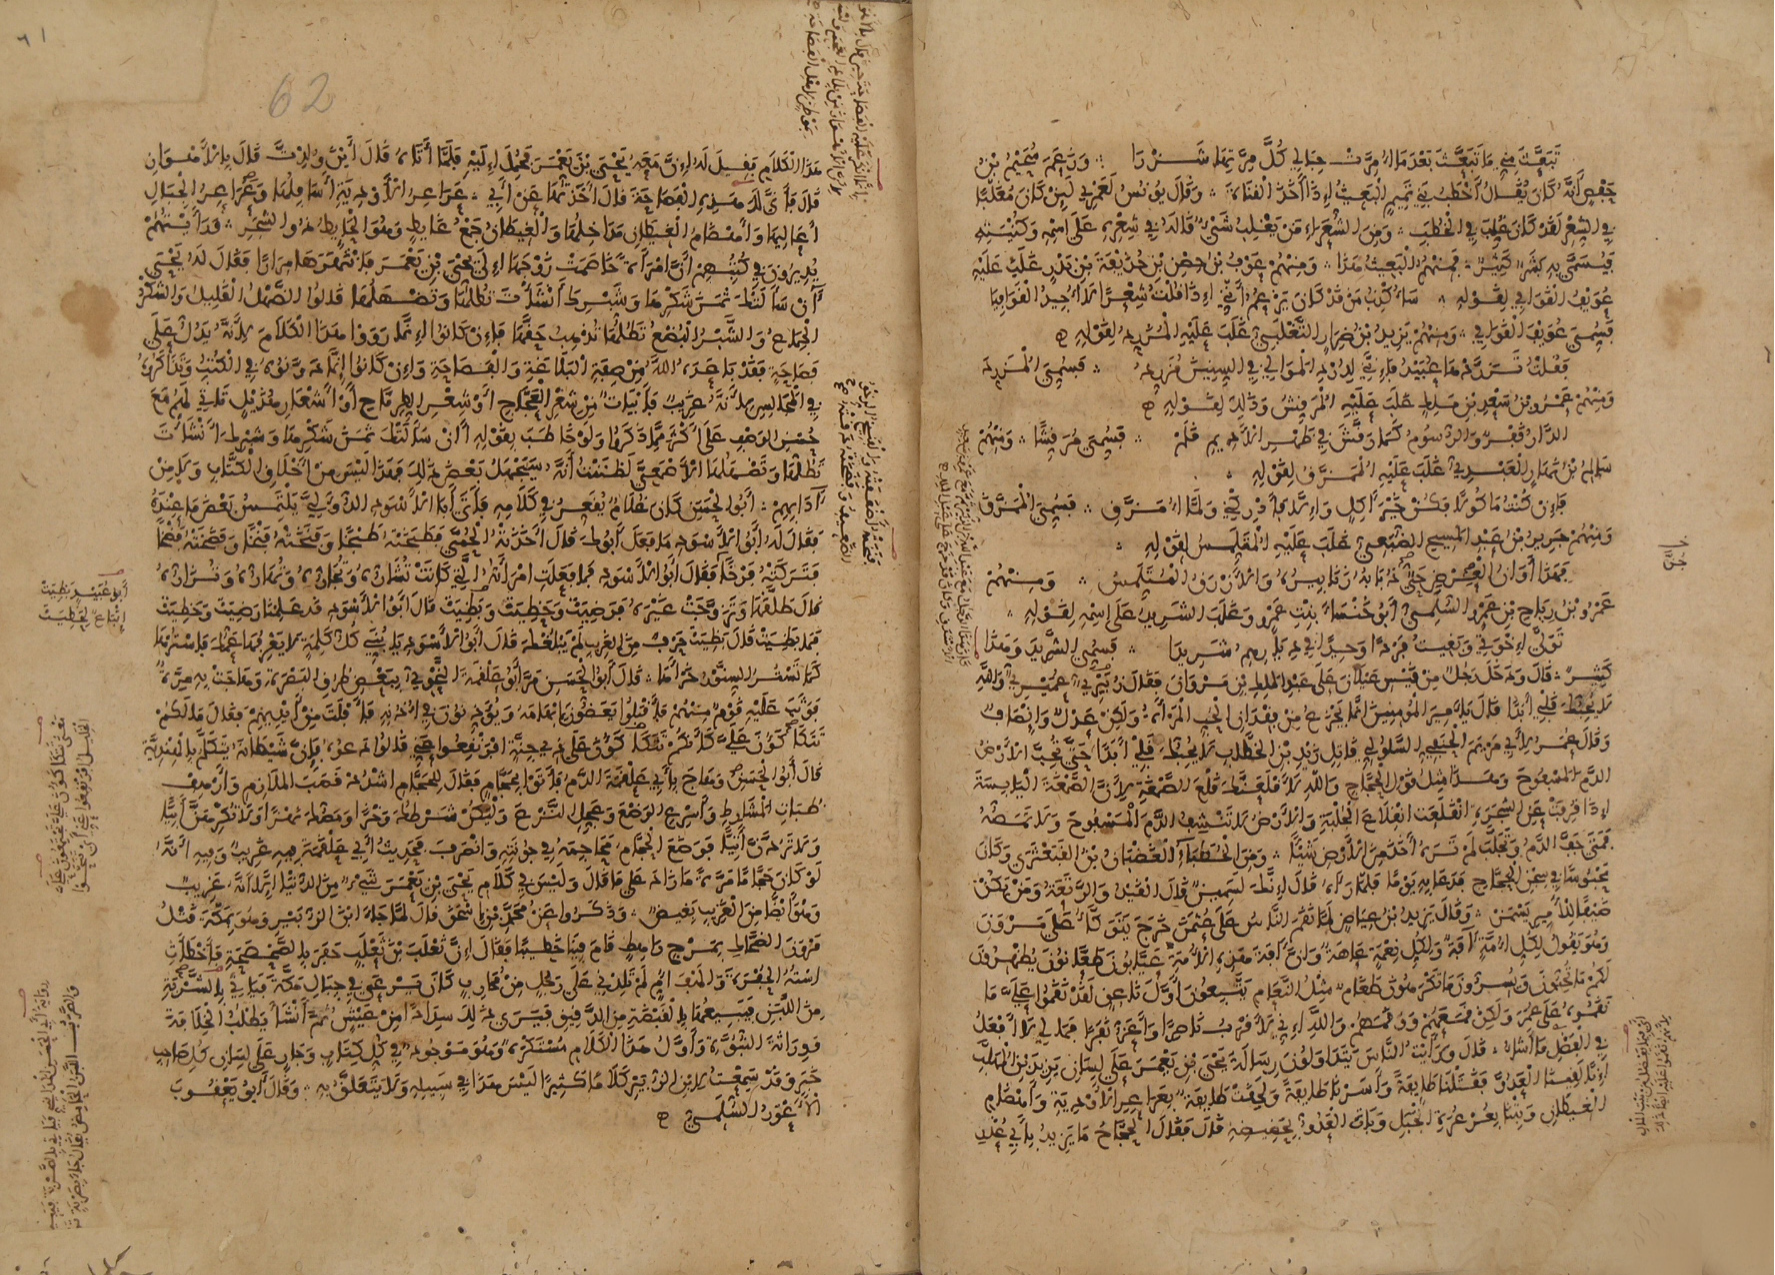 تَبَعَّثَ مِنِّي مَا تَبَعَّثَ بَعْدَمَا أُمِرَّتْ حِبَالِي كُلَّ مِرَّتِهَا شَزْرَا وَزَعَمَ سُحَيْمُ بْنُ
حَفْصٍ أَنَّهُ كَانَ يُقَالُ أَخْطَبُ بَنِي تَمِيمٍ الْبَعِيثُ إِذَا أَخَذَ الْقَنَاةَ وَقَالَ يُونُسُ لَعَمْرِي لَئِنْ كَانَ مُغَلَّبًا
فِي الشِّعْرِ لَقَدْ كَانَ غُلِّبَ فِي الْخُطَبِ وَمِنَ الشُّعَرَاءِ مَنْ يَغْلِبُ شَيْءٌ قَالَهُ فِي شِعْرِهِ عَلَى اسْمِهِ وَكُنْيَتِهِ
فَيُسَمَّى بِهِ بَشَرٌ كَثِيرٌ فَمِنْهُمُ الْبَعِيثُ هَذَا وَمِنْهُمْ عَوْفُ بْنُ حِصْنِ بْنِ حُذَيْفَةَ بْنِ بَدْرٍ غَلَبَ عَلَيْهِ
عُوَيْفُ الْقَوَافِي لِقَوْلِهِ سَأُكْذِبُ مَنْ قَدْ كَانَ يَزْعُمُ أَنَّنِي إِذَا قُلْتُ شِعْرًا لَا أُجِيدُ الْقَوَافِيَا
فَسُمِّيَ عُوَيْفَ الْقَوَافِي وَمِنْهُمْ يَزِيدُ بْنُ ضِرَارٍ التَّغْلَبِيُّ غَلَبَ عَلَيْهِ الْمُزَرِّدُ لِقَوْلِهِ
فَقُلْتُ تَزَرَّدْهَا عُبَيْدُ فَإِنَّنِي لِدُرْدِ الْمَوَالِي فِي السِّنِينَ مُزَرِّدُ فَسُمِّيَ الْمُزَرِّدَ
وَمِنْهُمْ عَمْرُو بْنُ سَعْدِ بْنِ مَالِكٍ غَلَبَ عَلَيْهِ الْمُرَقِّشُ وَذَلِكَ لِقَوْلِهِ
الدَّارُ قَفْرٌ وَالرُّسُومُ كَمَا رَقَّشَ فِي ظَهْرِ الْأَدِيمِ قَلَمْ فَسُمِّيَ مُرَقِّشًا وَمِنْهُمْ
شَأْسُ بْنُ نَهَارٍ الْعَبْدِيُّ غَلَبَ عَلَيْهِ الْمُمَزَّقُ لِقَوْلِهِ
فَإِنْ كُنْتُ مَأْكُولًا فَكُنْ خَيْرَ آكِلٍ وَإِلَّا فَأَدْرِكْنِي وَلَمَّا أُمَزَّقِ فَسُمِّيَ الْمُمَزَّقَ
وَمِنْهُمْ جَرِيرُ بْنُ عَبْدِ الْمَسِيحِ الضُّبَعِيُّ غَلَبَ عَلَيْهِ الْمُتَلَمِّسُ لِقَوْلِهِ
فَهَذَا أَوَانُ الْعِرْضِ حَيٌّ ذُبَابُهُ زَنَابِيرُهُ وَالْأَزْرَقُ الْمُتَلَمِّسُ وَمِنْهُمْ
عَمْرُو بْنُ رِيَاحِ بْنِ عَمْرٍو السُّلَمِيُّ أَبُو خَنْسَاءَ بِنْتِ عَمْرٍو وَغَلَبَ الشَّرِيدُ عَلَى اسْمِهِ لِقَوْلِهِ
تَوَلَّى إِخْوَتِي وَبَقِيتُ فَرْدًا وَحِيدًا فِي دِيَارِهِمُ شَرِيدَا فَسُمِّيَ الشَّرِيدَ وَهَذَا
كَثِيرٌ قَالَ وَدَخَلَ رَجُلٌ مِنْ قَيْسِ عَيْلَانَ عَلَى عَبْدِ الْمَلِكِ بْنِ مَرْوَانَ فَقَالَ زُبَيْرِيٌّ عُمَيْرِيٌّ وَاللَّهِ
لَا يُحِبُّكَ قَلْبِي أَبَدًا قَالَ يَا أَمِيرَ الْمُؤْمِنِينَ إِنَّمَا يَجْزَعُ مِنْ فِقْدَانِ الْحُبِّ الْمَرْأَةُ وَلَكِنْ عَدْلٌ وَإِنْصَافٌ
وَقَالَ عُمَرُ لِأَبِي مَرْيَمَ الْحَنَفِيِّ السَّلُولِيِّ قَاتِلِ زَيْدِ بْنِ الْخَطَّابِ لَا يُحِبُّكَ قَلْبِي أَبَدًا حَتَّى تُحِبَّ الْأَرْضُ
الدَّمَ الْمَسْفُوحَ وَهَذَا مِثْلُ قَوْلِ الْحَجَّاجِ وَاللَّهِ لَأَقْلَعَنَّكَ قَلْعَ الصَّمْغَةِ لِأَنَّ الصَّمْغَةَ الْيَابِسَةَ
إِذَا فُرِقَتْ عَنِ الشَّجَرَةِ انْقَلَعَتِ انْقِلَاعَ الْجُلْبَةِ وَالْأَرْضُ لَا تَنْشَفُ الدَّمَ الْمَسْفُوحَ وَلَا تَمَصُّهُ
فَمَتَى جَفَّ الدَّمُ وَتَجَلَّبَ لَمْ تَرَهُ أَخَذَ مِنَ الْأَرْضِ شَيْئًا وَمِنَ الْخُطَبَاءِ الْغَضْبَانُ بْنُ الْقَبَعْثَرَى وَكَانَ
مَحْبُوسًا فِي سِجْنِ الْحَجَّاجِ فَدَعَا بِهِ يَوْمًا فَلَمَّا رَآهُ قَالَ إِنَّكَ لَسَمِينٌ قَالَ الْقَيْدُ وَالرَّتَعَةُ وَمَنْ يَكُنْ
ضَيْفًا لِلْأَمِيرِ يَسْمَنْ وَقَالَ يَزِيدُ بْنُ عِيَاضٍ لَمَّا نَقَمَ النَّاسُ عَلَى عُثْمَنَ خَرَجَ يَتَوَكَّأُ عَلَى مَرْوَنَ
وَهُوَ يَقُولُ لِكُلِّ أُمَّةٍ آفَةٌ وَلِكُلِّ نِعْمَةٍ عَاهَةٌ وَإِنَّ آفَةَ هَذِهِ الْأُمَّةِ عَيَّابُونَ طَعَّانُونَ يُظْهِرُونَ
لَكُمْ مَا تُحِبُّونَ وَيُسِرُّونَ مَا تَكْرَهُونَ طَغَامٌ مِثْلُ النَّعَامِ يَتَّبِعُونَ أَوَّلَ نَاعِقٍ لَقَدْ نَقَمُوا عَلَيَّ مَا
نَقَمُوهُ عَلَى عُمَرَ وَلَكِنْ قَمَعَهُمْ وَوَقَمَهُمْ وَاللَّهِ إِنِّي لَأَقْرَبُ نَاصِرًا وَأَعَزُّ نَفَرًا فَمَا لِي لَا أَفْعَلُ
فِي الْفَضْلِ مَا أَشَاءُ قَالَ وَرَأَيْتُ النَّاسَ يَتَدَاوَلُونَ رِسَالَةَ يَحْيَى بْنِ يَعْمَرَ عَلَى لِسَانِ يَزِيدَ بْنِ الْمُهَلَّبِ
إِنَّا لَقِينَا الْعَدُوَّ فَقَتَلْنَا طَائِفَةً وَأَسَرْنَا طَائِفَةً وَلَحِقَتْ طَائِفَةٌ بِعَرَاعِرِ الْأَوْدِيَةِ وَأَهْضَامِ
الْغِيطَانِ وَبِتْنَا بِعُرْعُرَةِ الْجَبَلِ وَبَاتَ الْعَدُوُّ بِحَضِيضِهِ قَالَ فَقَالَ الْحَجَّاجُ مَا يَزِيدُ بِأَبِي عُذْرِ
٦١
62
هَذَا الْكَلَامِ فَقِيلَ لَهُ إِنَّ مَعَهُ يَحْيَى بْنَ يَعْمَرَ فَحُمِلَ إِلَيْهِ فَلَمَّا أَتَاهُ قَالَ أَيْنَ وُلِدْتَ قَالَ بِالْأَهْوَازِ
قَالَ فَأَنَّى لَكَ هَذِهِ الْفَصَاحَةُ قَالَ أَخَذْتُهَا عَنْ أَبِي عَرَاعِرُ الْأَوْدِيَةِ أَسَافِلُهَا وَعَرَاعِرُ الْجِبَالِ
أَعَالِيهَا وَأَهْضَامُ الْغِيطَانِ مَدَاخِلُهَا وَالْغِيطَانُ جَمْعُ غَائِطٍ وَهُوَ الْحَائِطُ ذُو الشَّجَرِ وَرَأَيْتُهُمْ
يُدِيرُونَ فِي كُتُبِهِمْ أَنَّ امْرَأَةً خَاصَمَتْ زَوْجَهَا إِلَى يَحْيَى بْنِ يَعْمَرَ فَانْتَهَرَهَا مِرَارًا فَقَالَ لَهُ يَحْيَى
أَأَنْ سَأَلَتْكَ ثَمَنَ شَكْرِهَا وَشَبْرِكَ أَنْشَأْتَ تَطُلُّهَا وَتَضْهَلُهَا قَالُوا الضَّهْلُ الْقَلِيلُ وَالشَّكْرُ
الْجِمَاعُ وَالشَّبْرُ الْبُضْعُ تَطُلُّهَا تَذْهَبُ بِحَقِّهَا فَإِنْ كَانُوا إِنَّمَا رَوَوْا هَذَا الْكَلَامَ لِأَنَّهُ يَدُلُّ عَلَى
فَصَاحَةٍ فَقَدْ بَاعَدَهُ اللَّهُ مِنْ صِفَةِ الْبَلَاغَةِ وَالْفَصَاحَةِ وَإِنْ كَانُوا إِنَّمَا دَوَّنُوهُ فِي الْكُتُبِ وَتَذَاكَرُوهُ
فِي الْمَجَالِسِ لِأَنَّهُ غَرِيبٌ فَأَبْيَاتٌ مِنْ شِعْرِ الْعَجَّاجِ أَوْ شِعْرِ الطِّرِمَّاحِ أَوْ أَشْعَارِ هُذَيْلٍ تَأْتِي لَهُمْ مَعَ
حُسْنِ الرَّصْفِ عَلَى أَكْثَرَ مِمَّا ذَكَرُوا وَلَوْ خَاطَبَ بِقَوْلِهِ أَأَنْ سَأَلَتْكَ ثَمَنَ شَكْرِهَا وَشَبْرِكَ أَنْشَأْتَ
تَطُلُّهَا وَتَضْهَلُهَا الْأَصْمَعِيَّ لَظَنَنْتُ أَنَّهُ سَيَجْهَلُ بَعْضَ ذَلِكَ فَهَذَا لَيْسَ مِنْ أَخْلَاقِ الْكُتَّابِ وَلَا مِنْ
آدَابِهِمْ أَبُو الْحَسَنِ كَانَ غُلَامٌ يُقَعِّرُ فِي كَلَامِهِ فَأَتَى أَبَا الْأَسْوَدِ الدُّؤَلِيَّ يَلْتَمِسُ بَعْضَ مَا عِنْدَهُ
فَقَالَ لَهُ أَبُو الْأَسْوَدِ مَا فَعَلَ أَبُوكَ قَالَ أَخَذَتْهُ الْحُمَّى فَطَبَخَتْهُ طَبْخًا وَفَنَخَتْهُ فَنْخًا وَفَضَخَتْهُ فَضْخًا
فَتَرَكَتْهُ فَرْخًا فَقَالَ أَبُو الْأَسْوَدِ فَمَا فَعَلَتِ امْرَأَتُهُ الَّتِي كَانَتْ تُشَارُّهُ وَتُجَارُّهُ وَتُهَارُّهُ وَتُزَارُّهُ
قَالَ طَلَّقَهَا وَتَزَوَّجَتْ غَيْرَهُ فَرَضِيَتْ وَحَظِيَتْ وَبَظِيَتْ قَالَ أَبُو الْأَسْوَدِ قَدْ عَلِمْنَا رَضِيَتْ وَحَظِيَتْ
فَمَا بَظِيَتْ قَالَ بَظِيَتْ حَرْفٌ مِنَ الْغَرِيبِ لَمْ يَبْلُغْكَ قَالَ أَبُو الْأَسْوَدِ يَا بُنَيَّ كُلُّ كَلِمَةٍ لَا يَعْرِفُهَا عَمُّكَ فَاسْتُرْهَا
كَمَا تَسْتُرُ السِّنَّوْرُ خَرْأَهَا قَالَ أَبُو الْحَسَنِ مَرَّ أَبُو عَلْقَمَةَ النَّحْوِيُّ بِبَعْضِ طُرُقِ الْبَصْرَةِ وَهَاجَتْ بِهِ مِرَّةٌ
فَوَثَبَ عَلَيْهِ قَوْمٌ مِنْهُمْ فَأَقْبَلُوا يَعَضُّونَ إِبْهَامَهُ وَيُؤَذِّنُونَ فِي أُذُنِهِ فَأَفْلَتَ مِنْ أَيْدِيهِمْ فَقَالَ مَا لَكُمْ
تَتَكَأْكَؤُونَ عَلَيَّ كَأَنَّكُمْ تَتَكَأْكَؤُونَ عَلَى ذِي جِنَّةٍ افْرَنْقِعُوا عَنِّي قَالُوا دَعُوهُ فَإِنَّ شَيْطَانَهُ يَتَكَلَّمُ بِالْهِنْدِيَّةِ
قَالَ أَبُو الْحَسَنِ وَهَاجَ بِأَبِي عَلْقَمَةَ الدَّمُ فَأَتَوْا بِحَجَّامٍ فَقَالَ لِلْحَجَّامِ اشْدُدْ قَصَبَ الْمَلَازِمِ وَأَرْهِفْ
ظُبَاتِ الْمَشَارِطِ وَأَسْرِعِ الْوَضْعَ وَعَجِّلِ النَّزْعَ وَلْيَكُنْ شَرْطُكَ وَخْزًا وَمَصُّكَ نَهْزًا وَلَا تُكْرِهَنَّ أَبِيًّا
وَلَا تَرُدَّنَّ أَتِيًّا فَوَضَعَ الْحَجَّامُ مَحَاجِمَهُ فِي جُونَتِهِ وَانْصَرَفَ فَحَدِيثُ أَبِي عَلْقَمَةَ فِيهِ غَرِيبٌ وَفِيهِ أَنَّهُ
لَوْ كَانَ حَجَّامًا مَرَّةً مَا زَادَ عَلَى مَا قَالَ وَلَيْسَ فِي كَلَامِ يَحْيَى بْنِ يَعْمَرَ شَيْءٌ مِنَ الدُّنْيَا إِلَّا أَنَّهُ غَرِيبٌ
وَهُوَ أَيْضًا مِنَ الْغَرِيبِ بَغِيضٌ وَذَكَرُوا عَنْ مُحَمَّدِ بْنِ إِسْحَقَ قَالَ لَمَّا جَاءَ ابْنَ الزُّبَيْرِ وَهُوَ بِمَكَّةَ قَتْلُ
مَرْوَنَ الضَّحَّاكَ بِمَرْجِ رَاهِطٍ قَامَ فِينَا خَطِيبًا فَقَالَ إِنَّ ثَعْلَبَ بْنَ ثَعْلَبٍ حَفَرَ بِالصَّحْصَحَةِ فَأَخْطَأَتِ
اسْتُهُ الْحُفْرَةَ وَالْهَفَ أُمٍّ لَمْ تَلِدْنِي عَلَى رَجُلٍ مِنْ مُحَارِبٍ كَانَ يَرْعَى فِي جِبَالِ مَكَّةَ فَيَأْتِي بِالشَّرْبَةِ
مِنَ اللَّبَنِ فَيَبِيعُهَا بِالْقَبْضَةِ مِنَ الدَّقِيقِ فَيَرَى ذَلِكَ سِدَادًا مِنْ عَيْشٍ ثُمَّ أَنْشَأَ يَطْلُبُ الْخِلَافَةَ
وَوِرَاثَةَ النُّبُوَّةِ وَأَوَّلُ هَذَا الْكَلَامِ مُسْتَكْرَهٌ وَهُوَ مَوْجُودٌ فِي كُلِّ كِتَابٍ وَجَارٍ عَلَى لِسَانِ كُلِّ صَاحِبِ
خَبَرٍ وَقَدْ سَمِعْتُ لِابْنِ الزُّبَيْرِ كَلَامًا كَثِيرًا لَيْسَ هَذَا فِي سَبِيلِهِ وَلَا يَتَعَلَّقُ بِهِ وَقَالَ أَبُو يَعْقُوبَ
الْأَعْوَرُ السُّلَمِيُّ
أبو عبيد بظيت
إتباع لحظيت